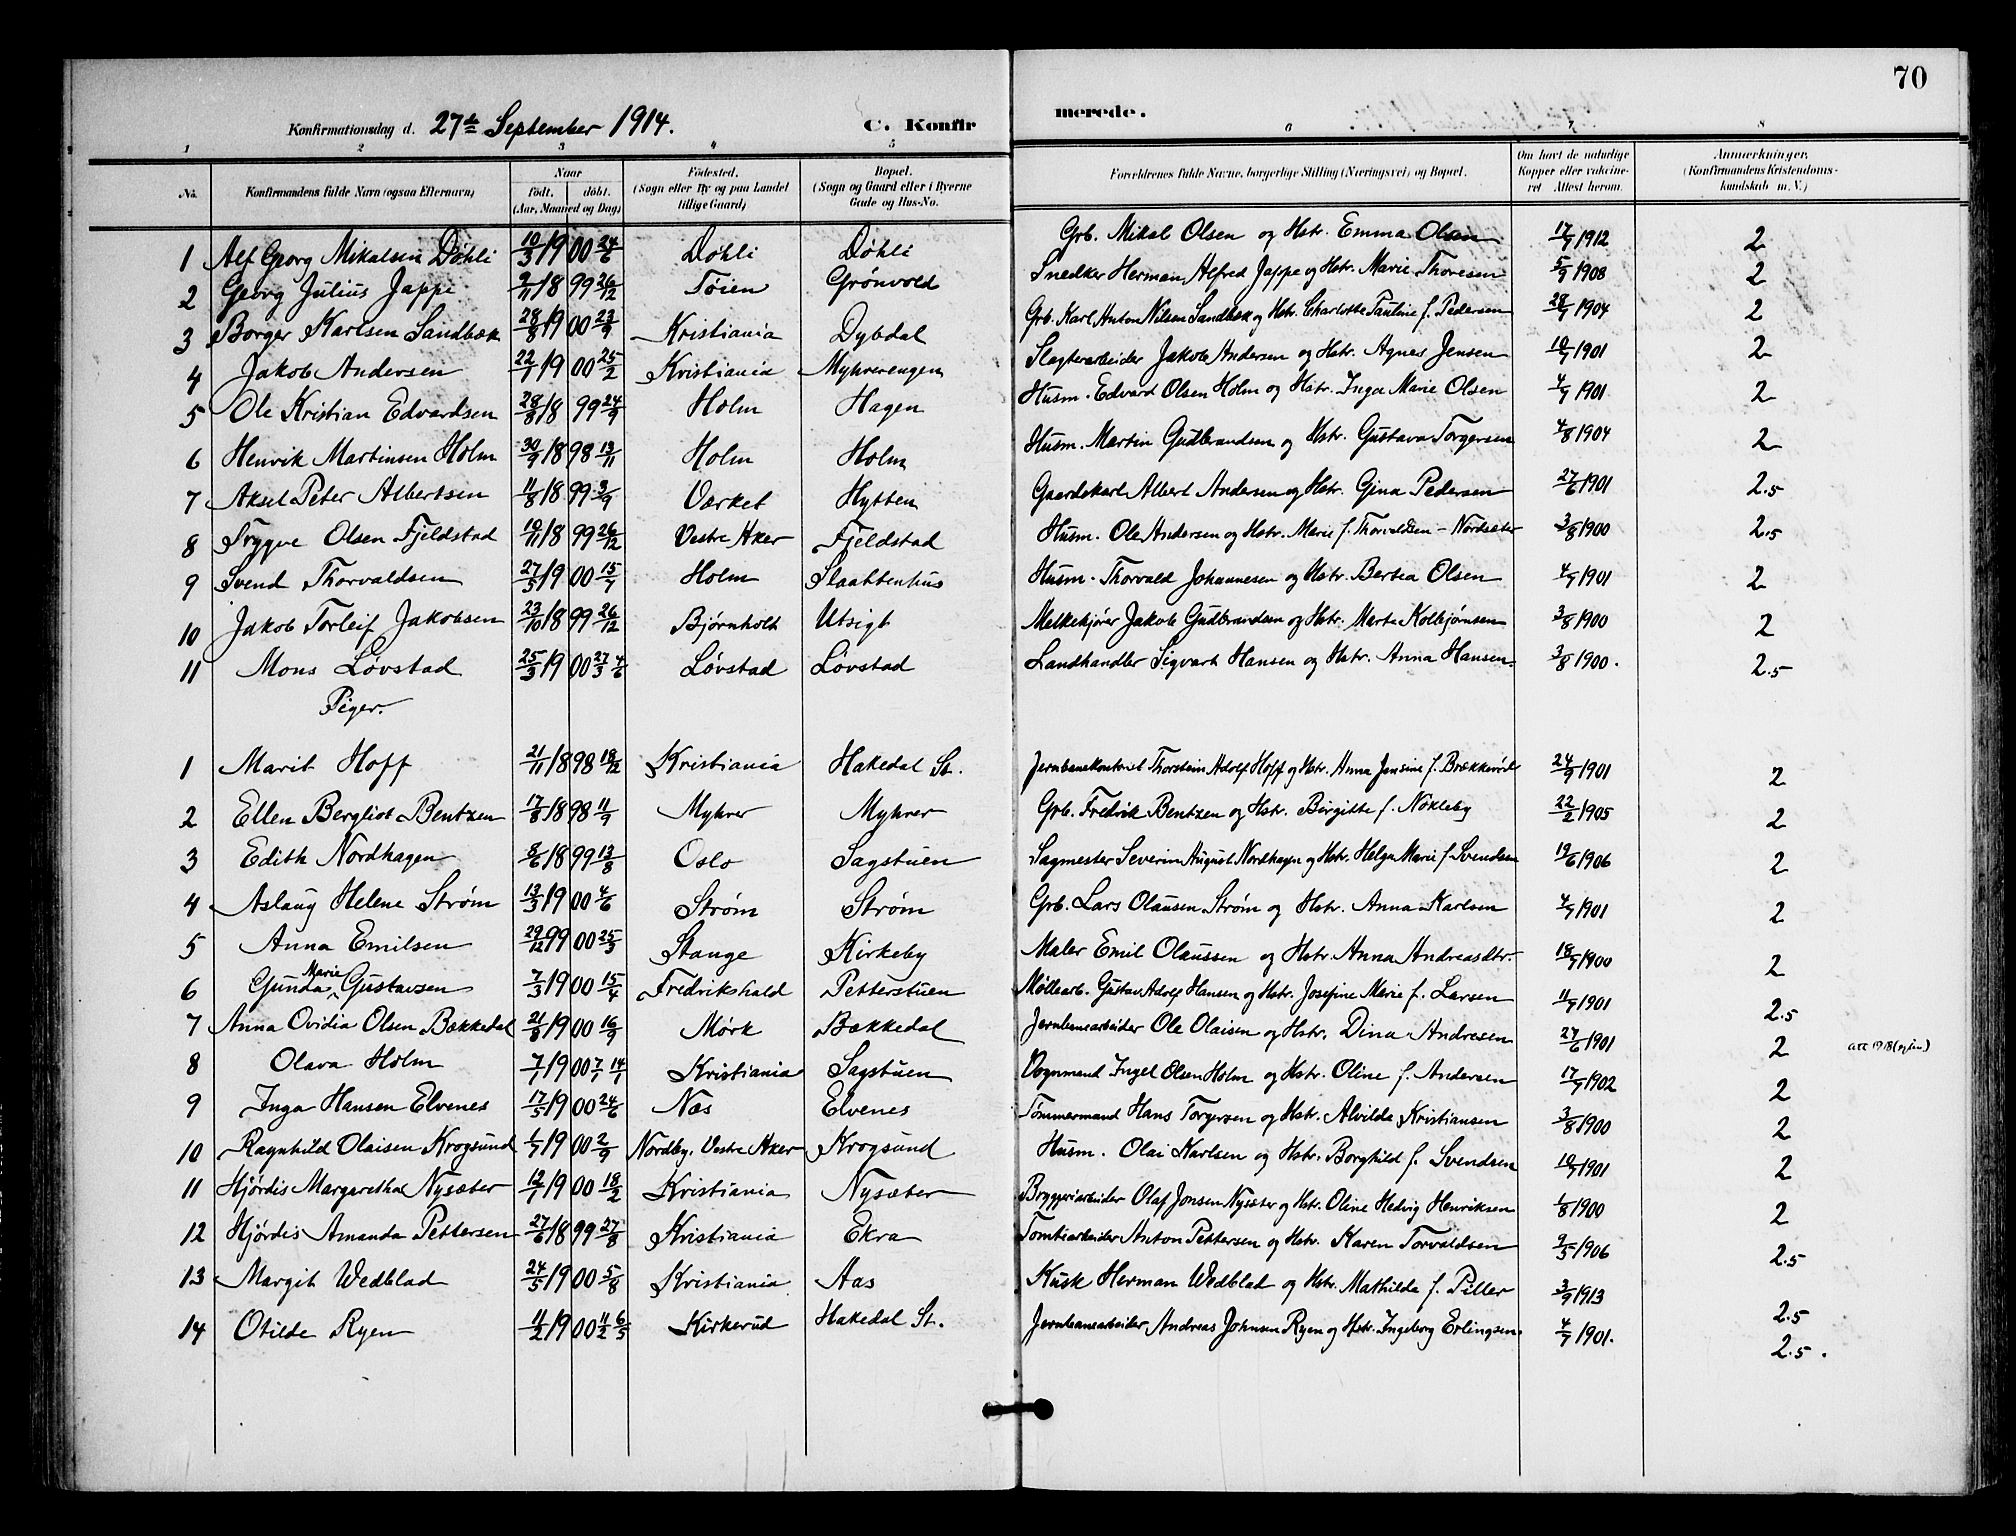 70
Konfirmationsdag d. 27de September 1914. C. Konfir merede.
1 2 3 4 5 6 7 8
No. Konfirmandens fulde Navn (ogsaa Efternavn) Naar født, døbt. (Aar, Maaned og Dag) Fødested. (Sogn eller By og paa Landet tillige Gaard) Bopæl. (Sogn og Gaard eller i Byerne Gade og Hus-No. Forældrenes fulde Navne, borgerlige Stilling (Næringsvei) og Bopæl. Om havt de naturlige Kopper eller vakcineret Attest herom. Anmærkninger. (Konfirmandens Kristendomskundskab m. V.)
1 Alf Georg Mikalsen Døhli 10/3 1900 24/6 Døhli Døhli Grb. Mikal Olsen og Hstr. Emma Olsen 17/7 1912 2
2 Georg Julius Jappe 2/11 1899 26/12 Tøien Grønvold Snedker Herman Alfred Jappe og Hstr. Marie Thoresen 5/9 1908 2
3 Borger Karlsen Sandbæk 28/8 1900 23/9 Kristiania Dybdal Grb. Karl Anton Nilsen Sandbæk og Hstr. Charlotte Pauline f. Pedersen 28/7 1904 2
4 Jakob Andersen 22/1 1900 25/2 Kristiania Myhrerengen Slagterarbeider Jakob Andersen og Hstr. Agnes Jensen 10/7 1901 2
5 Ole Kristian Edvardsen 28/8 1899 24/9 Holm Hagen Husm. Edvard Olsen Holm og Hstr. Inga Marie Olsen 4/7 1901 2
6 Henrik Martinsen Holm 30/9 1898 13/11 Holm Holm Husm. Martin Gudbrandsen og Hstr. Gustava Torgersen 4/8 1904 2
7 Aksel Peter Albertsen 11/8 1899 3/9 Værket Hytten Gaardskarl Albert Andersen og Hstr. Gina Pedersen 27/6 1901 2.5
8 Trygve Olsen Fjeldstad 10/11 1899 26/12 Vestre Aker Fjeldstad Husm. Ole Andersen og Hstr. Marie f. Thorvaldsen - Nordsæter 3/8 1900 2.5
9 Svend Thorvaldsen 27/5 1900 15/7 Holm Slaattenhus Husm. Thorvald Johannesen og Hstr. Bertea Olsen 4/7 1901 2
10 Jakob Torleif Jakobsen 23/10 1899 26/12 Bjørnholt Utsigt Melkekjører Jakob Gudbrandsen og Hstr. Marte Kolbjørnsen 3/8 1900 2
11 Mons Løvstad 25/3 1900 27/3 4/6 Løvstad Løvstad Landhandler Sigvart Hansen og Hstr. Anna Hansen. 3/8 1900. 2.5
Piger.
1 Marit Hoff 21/11 1898 18/12 Kristiania Hakedal St. Jernbanekontorist Thorstein Adolf Hoff og Hstr. Anna Jensine f. 24/9 1901 2
2 Ellen Bergliot Bentzen 17/8 1898 11/9 Myhrer Myhrer Grb. Fredrik Bentzen og Hstr. Birgitte f. Nøkleby 22/2 1905 2
3 Edith Nordhagen 8/6 1899 13/8 Oslo Sagstuen Sagmester Severin August Nordhagen og Hstr. Helga Marie f. Svendsen 19/6 1906 2
4 Aslaug Helene Strøm 13/3 1900 4/6 Strøm Strøm Grb. Lars Olausen Strøm og Hstr. Anna Karlsen 4/7 1901 2
5 Anna Emilsen 29/12 99 00 25/3 Stange Kirkeby Maler Emil Olaussen og Hstr. Anna Andreasdtr 18/7 1900 2
6 Gunda Marie Gustavsen 7/3 1900 15/4 Fredrikshald Petterstuen Møllearb. Gustav Adolf Hansen og Hstr. Josefine Marie f. Larsen 11/7 1901 2.5
7 Anna Ovidia Olsen Bækkedal 21/8 1900 16/9 Mørk Bækkedal Jernbanearbeider Ole Olaisen og Hstr. Dina Andresen 27/6 1901 2
8 Olava Holm 7/1 1900 7/1 14/1 Kristiania Sagstuen Vognmand Ingel Olsen Holm og Hstr. Oline f. Andersen 17/7 1902 2
9 Inga Hansen Elvenes 17/5 1900 24/6 Næs Elvenes Tømmermand Hans Torgersen og Hstr. Alvilda Kristiansen 3/8 1900 2
10 Ragnhild Olaisen Krogsund 1/7 1900 2/9 Nordby, Vestre Aker Krogsund Husm. Olai Karlsen og Hstr. Borghild f. Svendsen 10/7 1901 2
11 Hjørdis Margaretha Nysæter 12/1 1900 18/2 Kristiania Nysæter Bryggeriarbeider Olaf Jonsen Nysæter og Hstr. Oline Hedvig Henriksen 1/8 1900 2
12 Hjørdis Amanda Pettersen 27/6 1899 27/8 Kristiania Ekra Tomtearbeider Anton Pettersen og Hstr. Karen Torvaldsen 9/5 1906 2.5
13 Margit Wedblad 24/5 1900 5/8 Kristiania Aas Kusk Herman Wedblad og Hstr. Mathilde f. Piller 3/9 1913 2.5
14 Otilde Ryen 11/2 1900 11/2 6/5 Kirkerud Hakedal St. Jernbanearbeider Andreas Johnsen Ryen og Hstr. Ingeborg Erlingsen. 4/7 1901. 2.5.